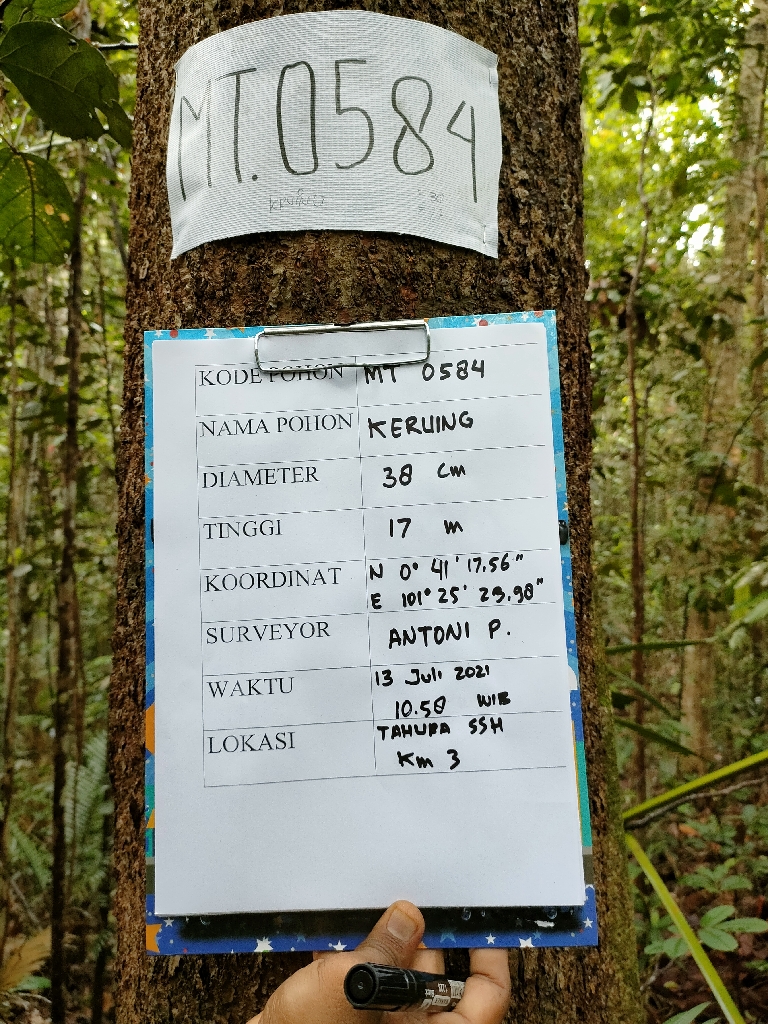 MT.0584
KODE POHON MT 0584
NAMA POHON KERUING
DIAMETER 38 cm
TINGGI 17 m
KOORDINAT N 0° 41' 17.56"
E 101° 25' 29.98"
SURVEYOR ANTONI P.
WAKTU 13 Juli 2021
10.58 WIB
LOKASI TAHURA SSH
Km 3